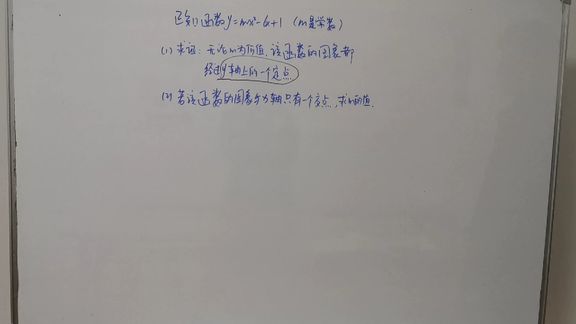 已知函数y=mx²-6x+1 (m是常数)
(1) 求证: 无论m为何值,该函数的图象都
经过y轴上的一个定点
(2) 若该函数的图象与x轴只有一个交点,求m的值.